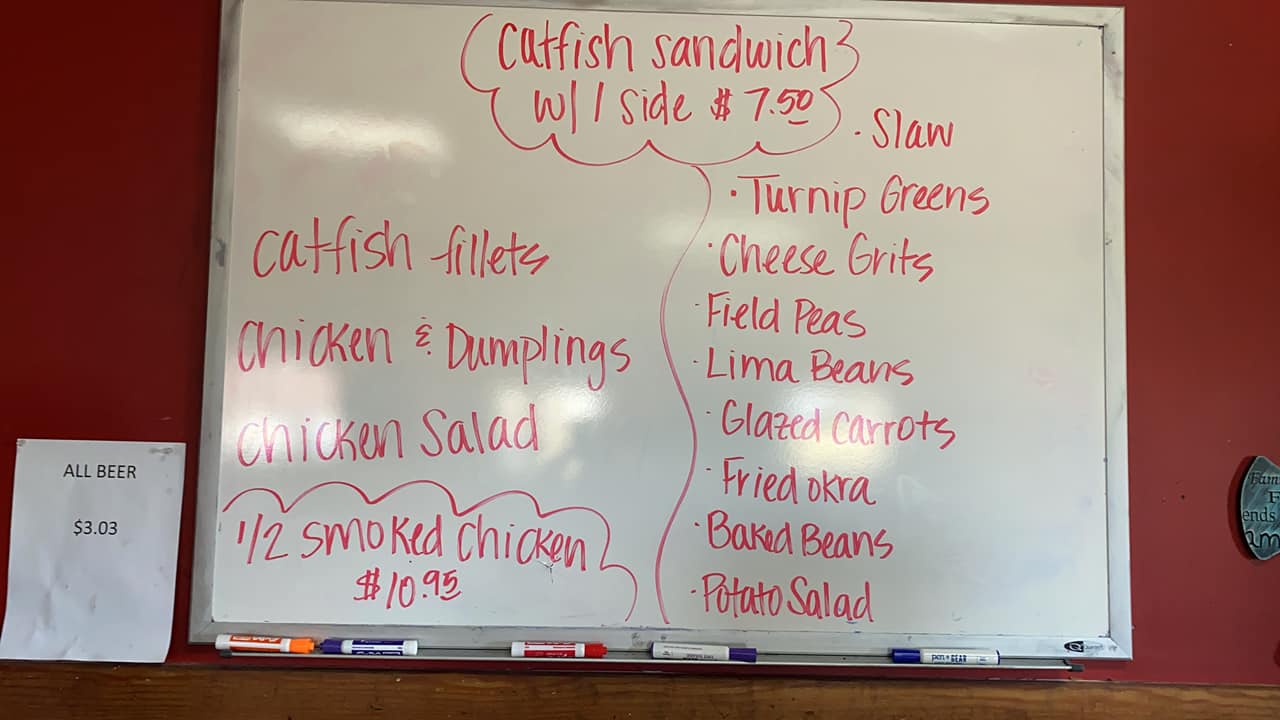 Catfish sandwich
w/ 1 side $ 7.50
Catfish fillets
Chicken & Dumplings
Chicken Salad
1/2 smoked Chicken
$10.95
· Slaw
· Turnip Greens
· Cheese Grits
· Field Peas
· Lima Beans
· Glazed Carrots
· Fried okra
· Baked Beans
· Potato Salad
ALL BEER
$3.03
pen+GEAR
Quartet